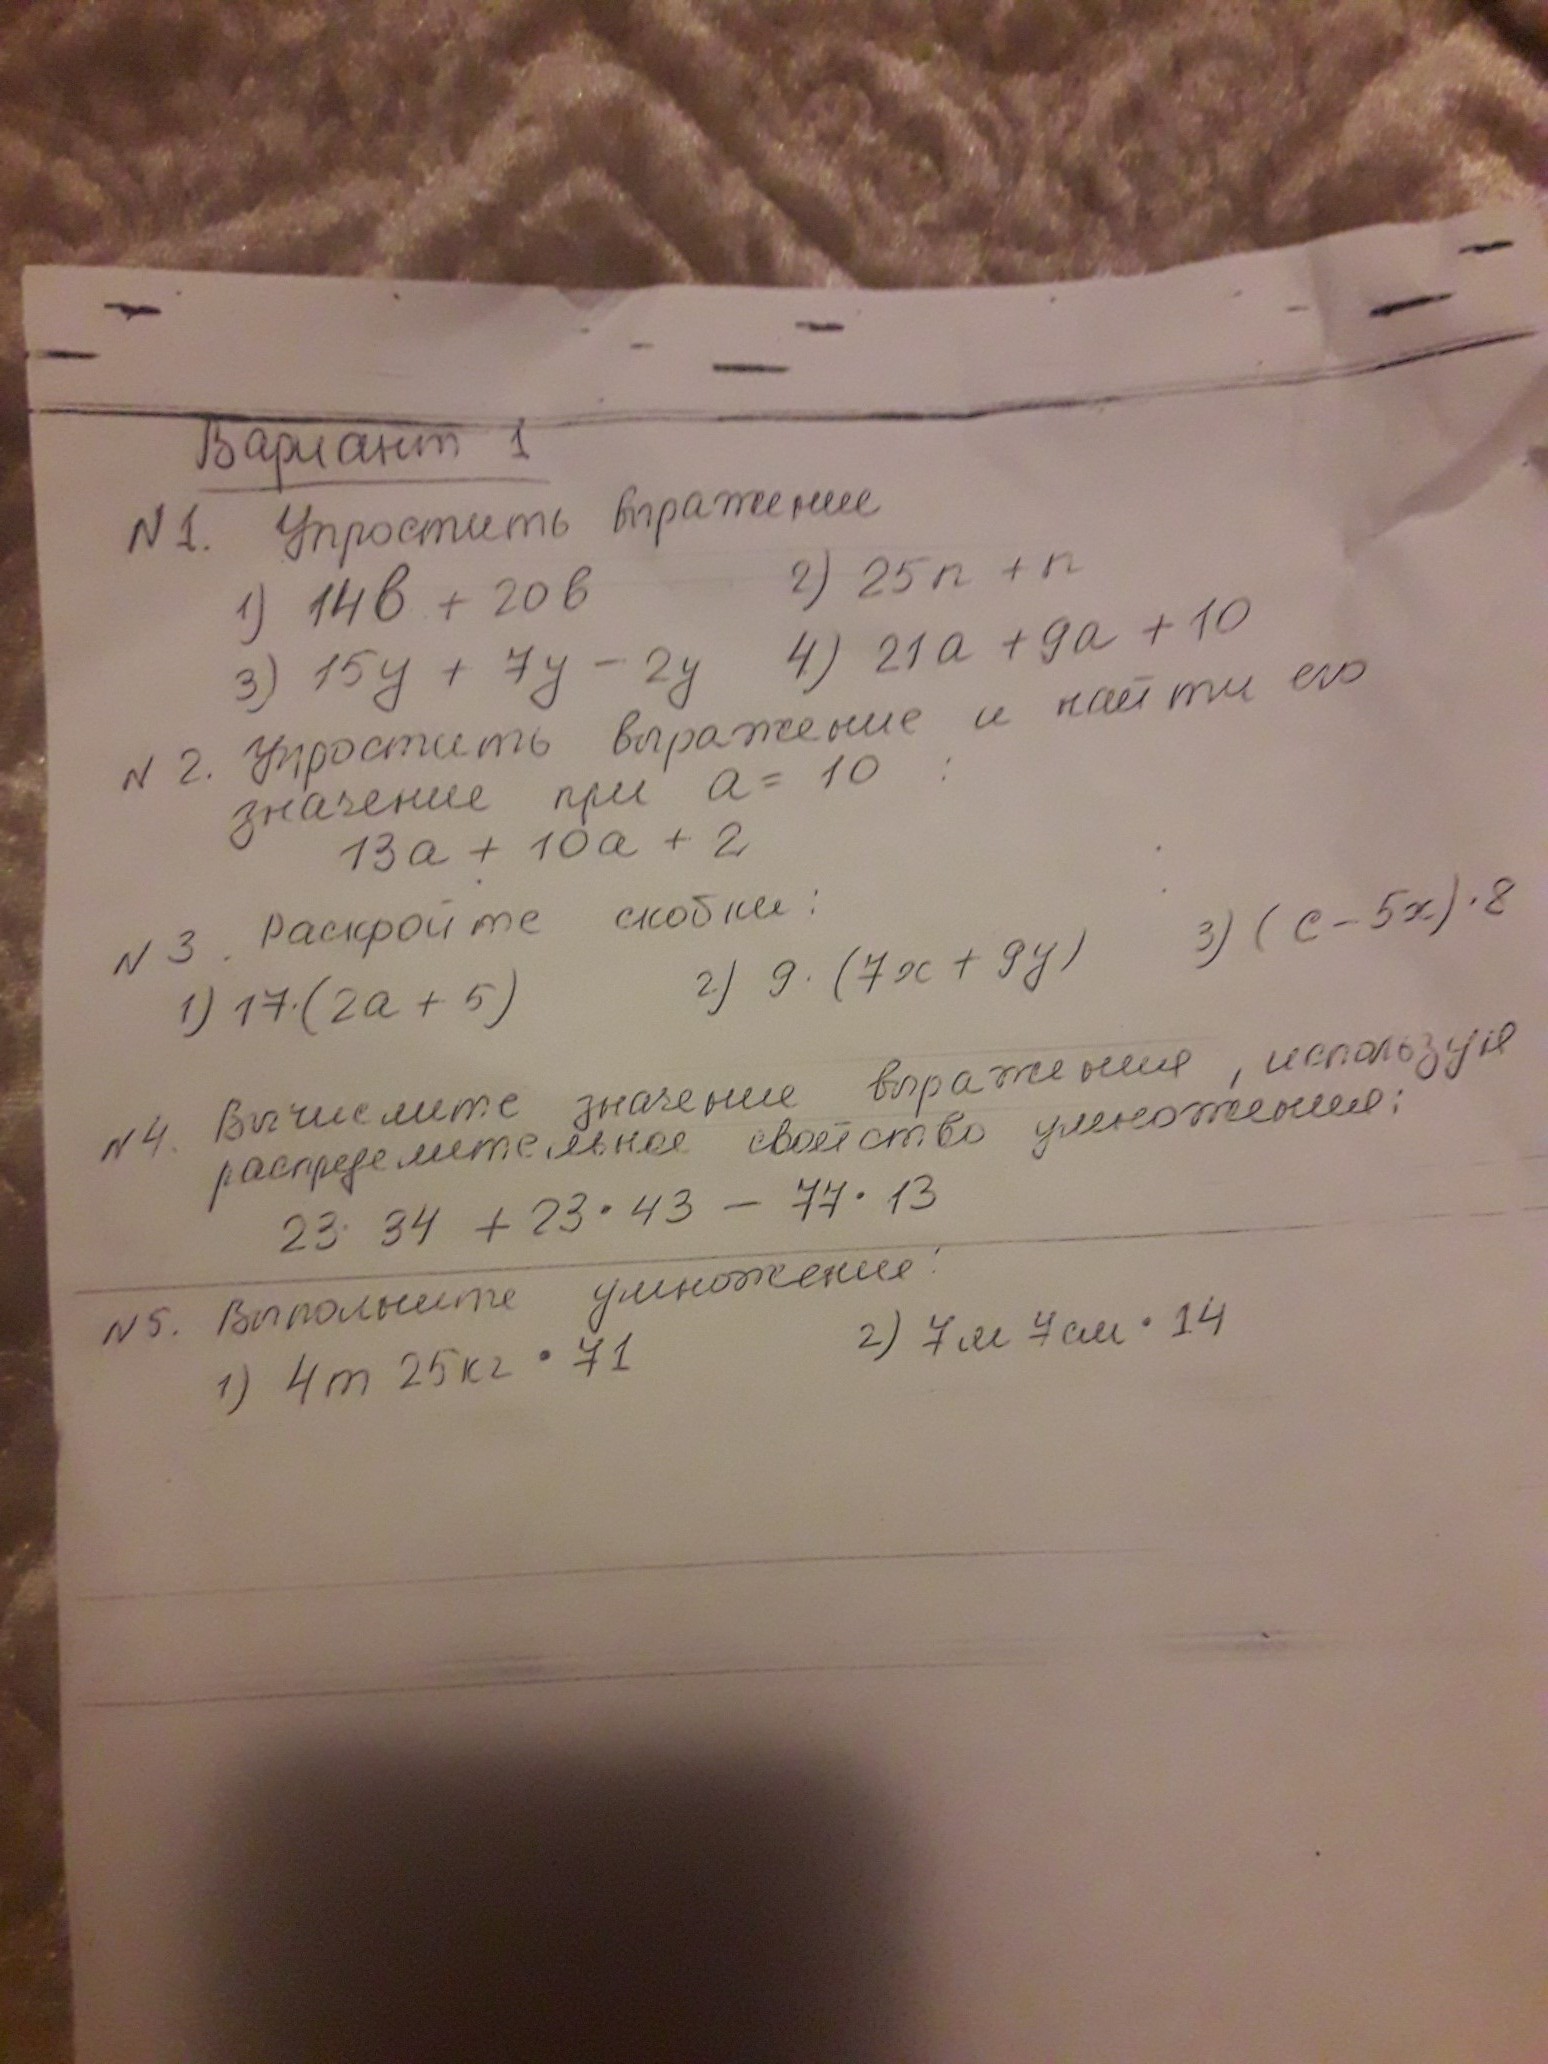 Вариант 1
N1. Упростить выражение
1) 14в + 20в 2) 25n + n
3) 15y + 7y - 2y 4) 21a + 9a + 10
N2. Упростить выражение и найти его
значение при a = 10 :
13a + 10a + 2
N3. Раскройте скобки:
1) 17·(2a + 5) 2) 9·(7x + 9y) 3) (c - 5x)·8
N4. Вычислите значение выражения, используя
распределительное свойство умножения:
23·34 + 23·43 - 77·13
N5. Выполните умножение:
1) 4т 25кг · 71 2) 7м 7см · 14